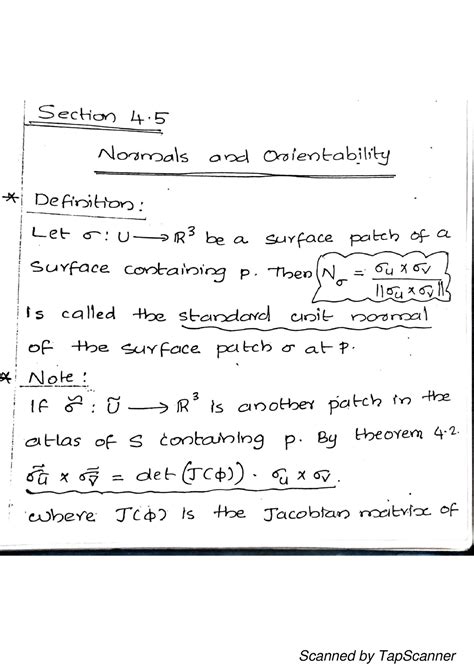 Section 4.5
Normals and Orientability
* Definition:
Let σ: U ⟶ ℝ³ be a surface patch of a
surface containing p. Then N_σ = σ_u × σ_v / ||σ_u × σ_v||
is called the standard unit normal
of the surface patch σ at p.
* Note:
If σ̃ : Ũ ⟶ ℝ³ is another patch in the
atlas of S containing p. By theorem 4.2.
σ̃_ũ × σ̃_ṽ = det (J(ϕ)) · σ_u × σ_v.
where J(ϕ) is the Jacobian matrix of
Scanned by TapScanner